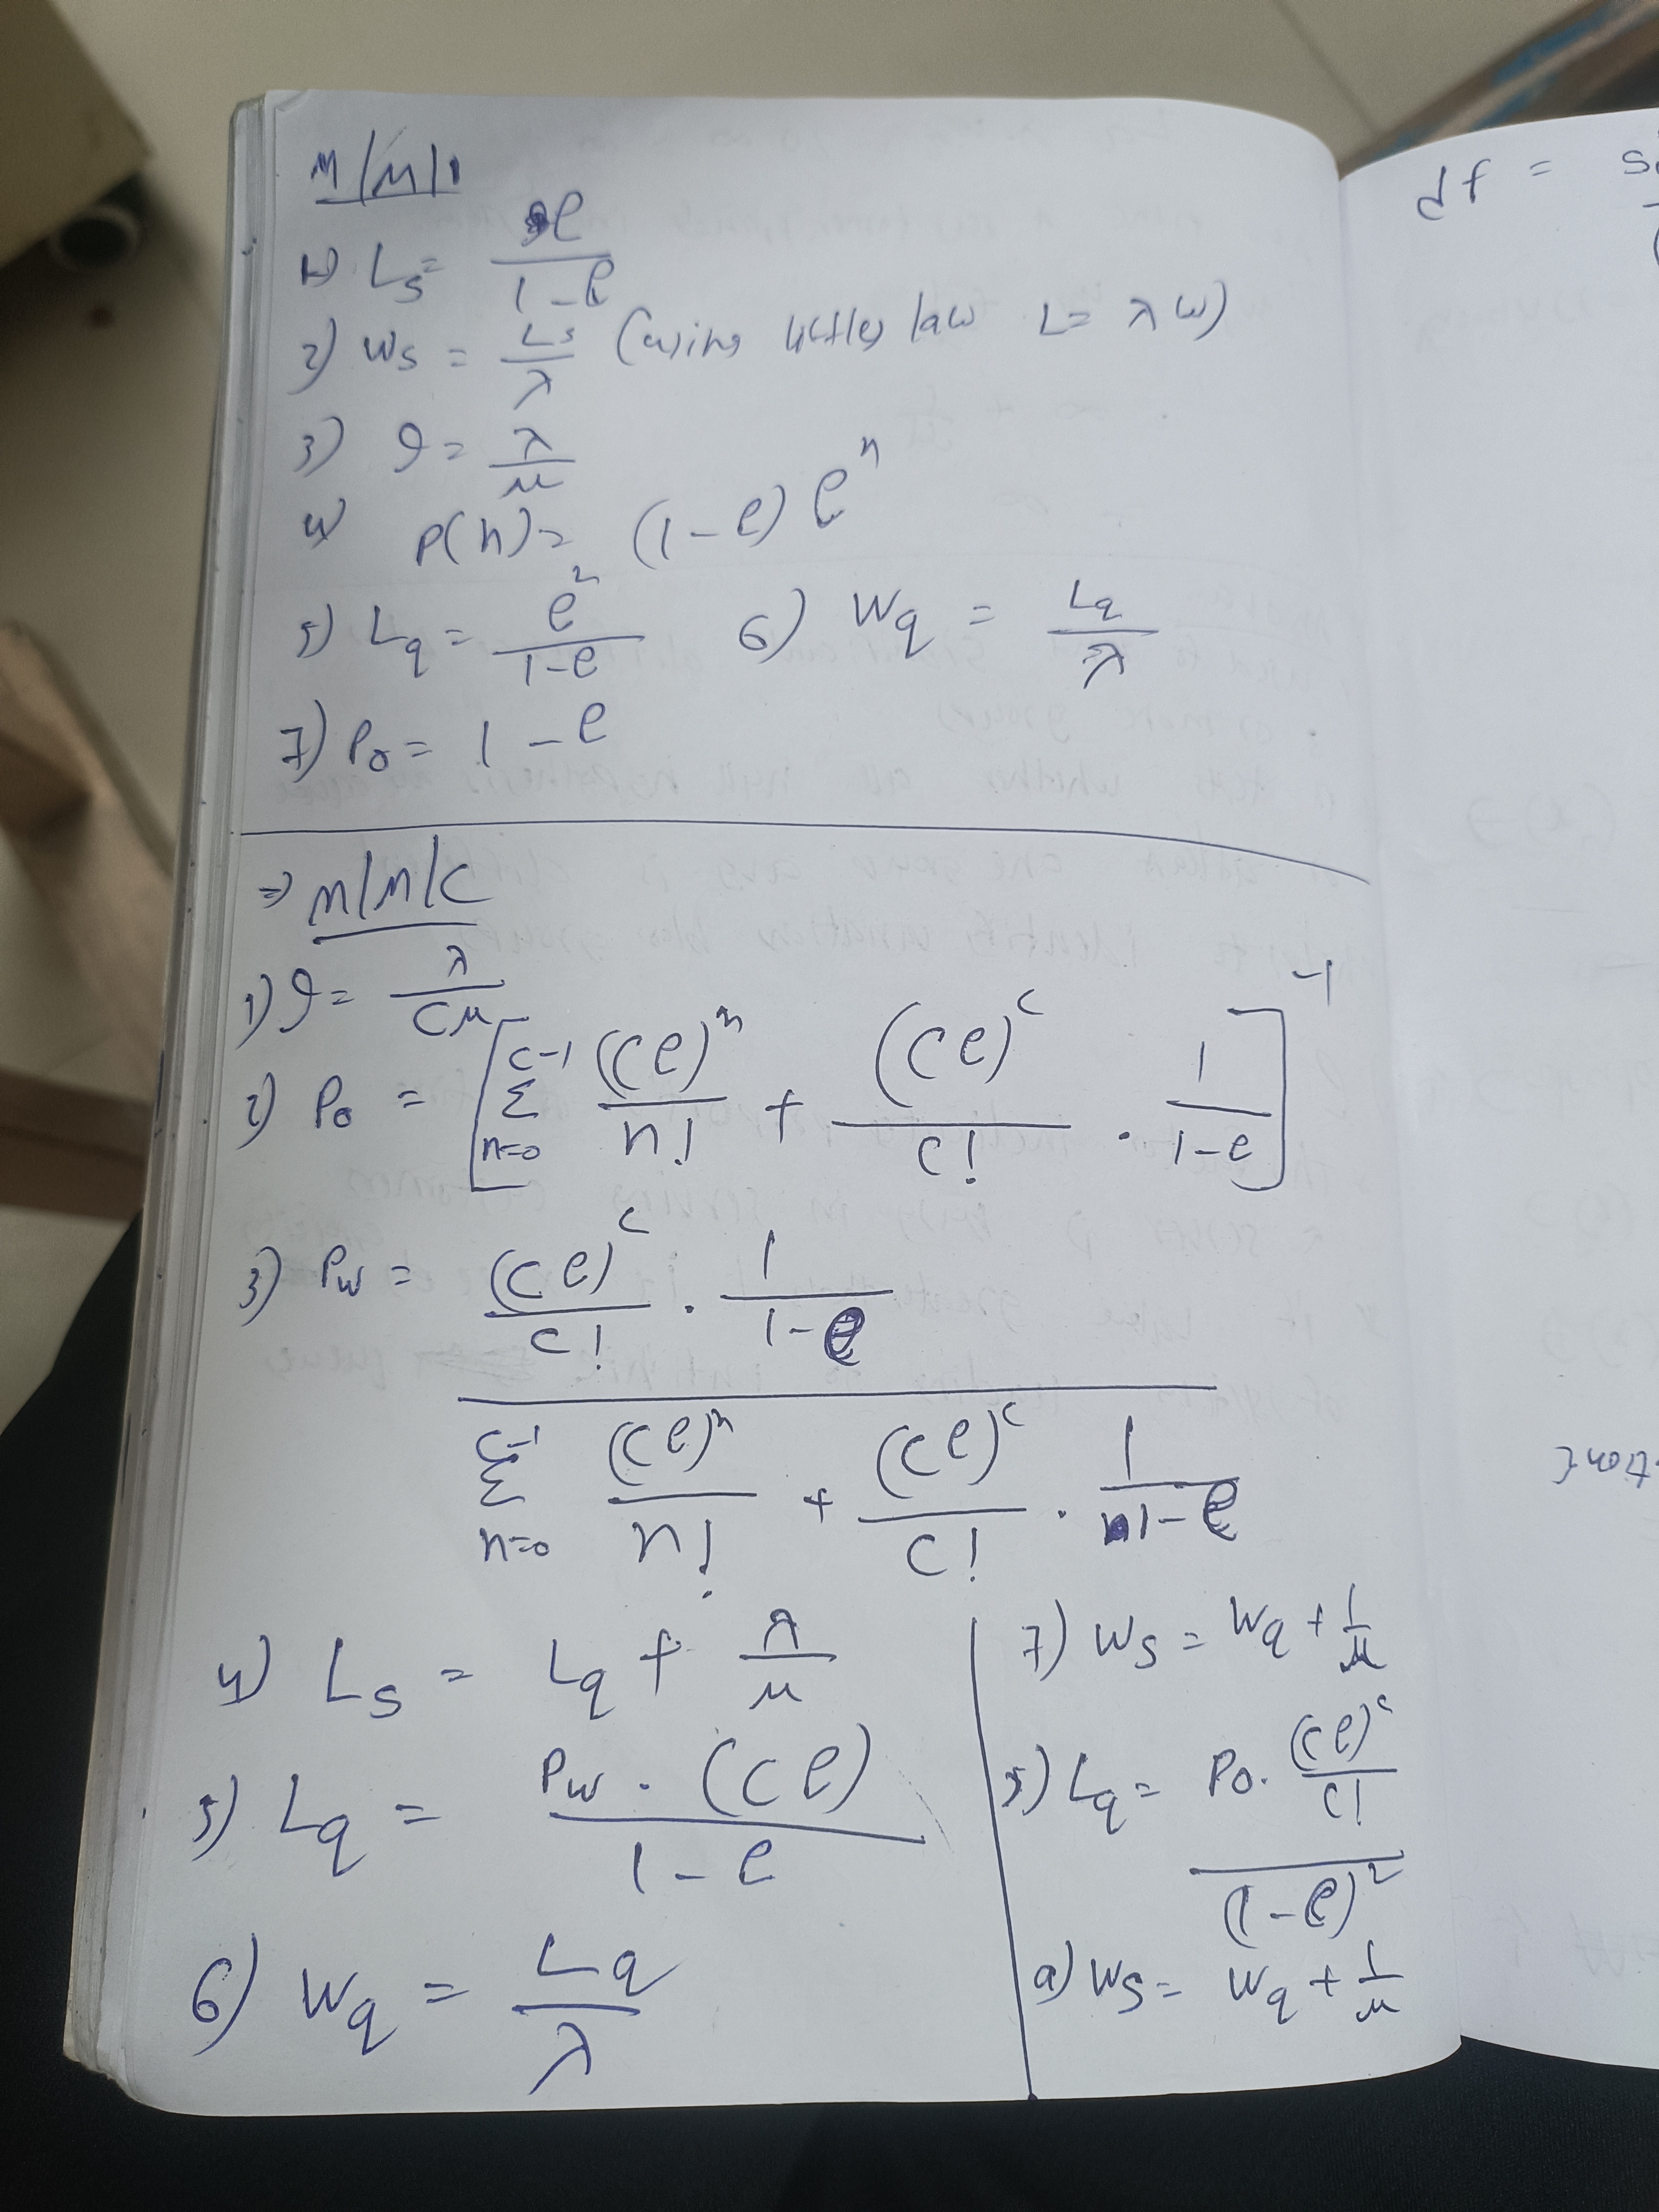 M/M/1
1) Ls = ρ / (1-ρ)
2) Ws = Ls / λ (using littles law L = λW)
3) ρ = λ / μ
4) P(n) = (1-ρ) ρ^n
5) Lq = ρ^2 / (1-ρ) 6) Wq = Lq / λ
7) P0 = 1-ρ
⇒ M/M/C
1) ρ = λ / (Cμ)
2) P0 = [ Σ_{n=0}^{C-1} (Cρ)^n / n! + (Cρ)^C / C! · 1 / (1-ρ) ]^-1
3) Pw = ( (Cρ)^C / C! · 1 / (1-ρ) ) / ( Σ_{n=0}^{C-1} (Cρ)^n / n! + (Cρ)^C / C! · 1 / (1-ρ) )
4) Ls = Lq + λ / μ
5) Lq = Pw · (Cρ) / (1-ρ)
6) Wq = Lq / λ
7) Ws = Wq + 1 / μ
5) Lq = ( P0 · (Cρ)^C / C! ) / (1-ρ)^2
a) Ws = Wq + 1 / μ
df =